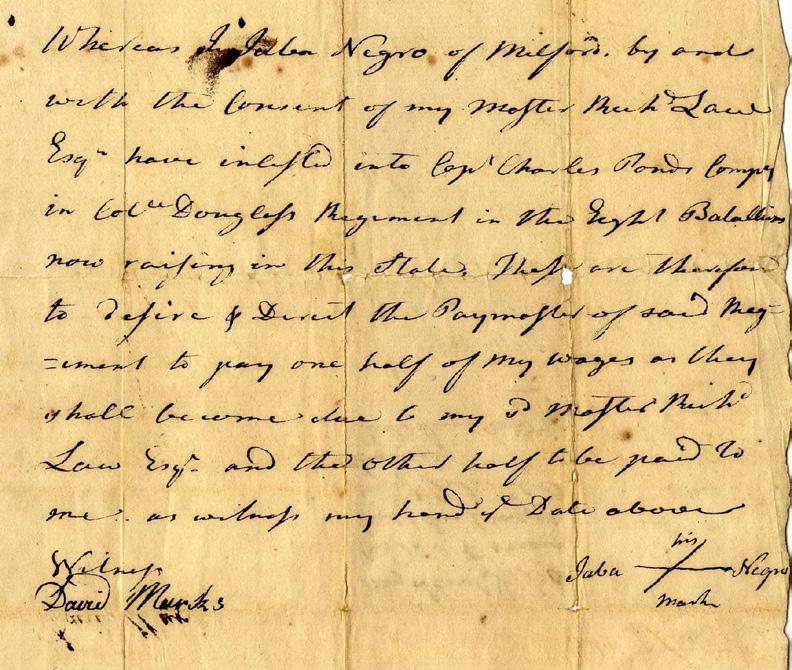 Whereas I Juba Negro of Milford. by and
with the Consent of my Master Richd Law
Esqr have inlisted into Capt Charles Ponds Compy
in Colll Douglass Regiment in the Eight Batallion
now raising in this State. These are therefore
to desire & Direct the Paymaster of said Reg=
=iment to pay one half of my wages as they
shall become due to my sd Master Richd
Law Esqr. and the other half to be paid to
me. as witness my hand ye Date above
Witness
his
Juba Negro
David Marks
mark